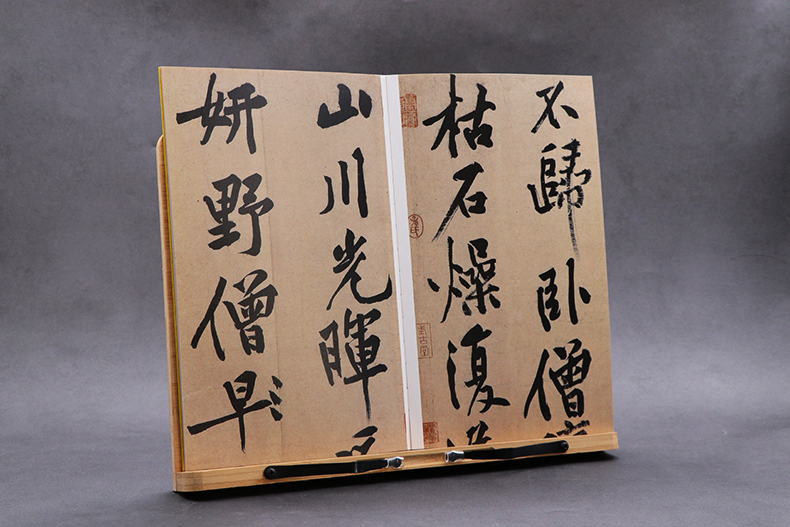 不歸卧僧
枯石燥復
山川光暉
妍野僧早